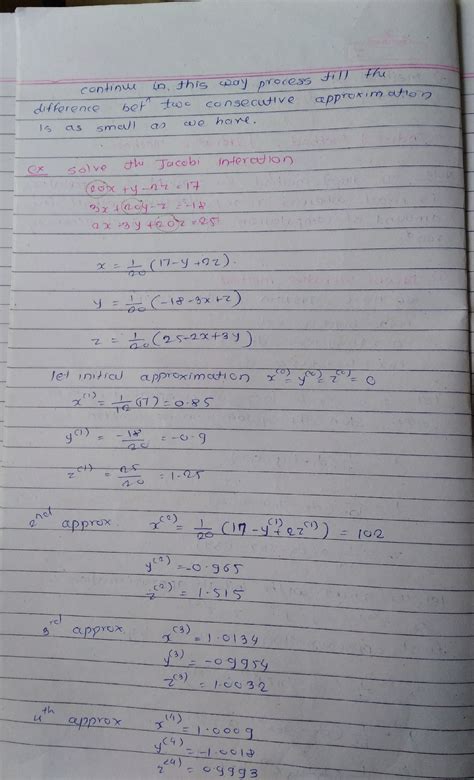 continue in this way process till the
difference betⁿ two consecutive approximation
is as small as we have.
Ex solve the Jacobi Interation
20x + y - 2z = 17
3x + 20y - z = -18
2x - 3y + 20z = 25
x = 1/20 (17 - y + 2z).
y = 1/20 (-18 - 3x + z)
z = 1/20 (25 - 2x + 3y)
let initial approximation x⁽⁰⁾ = y⁽⁰⁾ = z⁽⁰⁾ = 0
x⁽¹⁾ = 1/10 (17) = 0.85
y⁽¹⁾ = -18/20 = -0.9
z⁽¹⁾ = 25/20 = 1.25
2nd approx. x⁽²⁾ = 1/20 (17 - y⁽¹⁾ + 2z⁽¹⁾) = 102
y⁽²⁾ = -0.965
z⁽²⁾ = 1.515
3rd approx. x⁽³⁾ = 1.0134
y⁽³⁾ = -0.9954
z⁽³⁾ = 1.0032
4th approx x⁽⁴⁾ = 1.0009
y⁽⁴⁾ = -1.0018
z⁽⁴⁾ = 0.9993